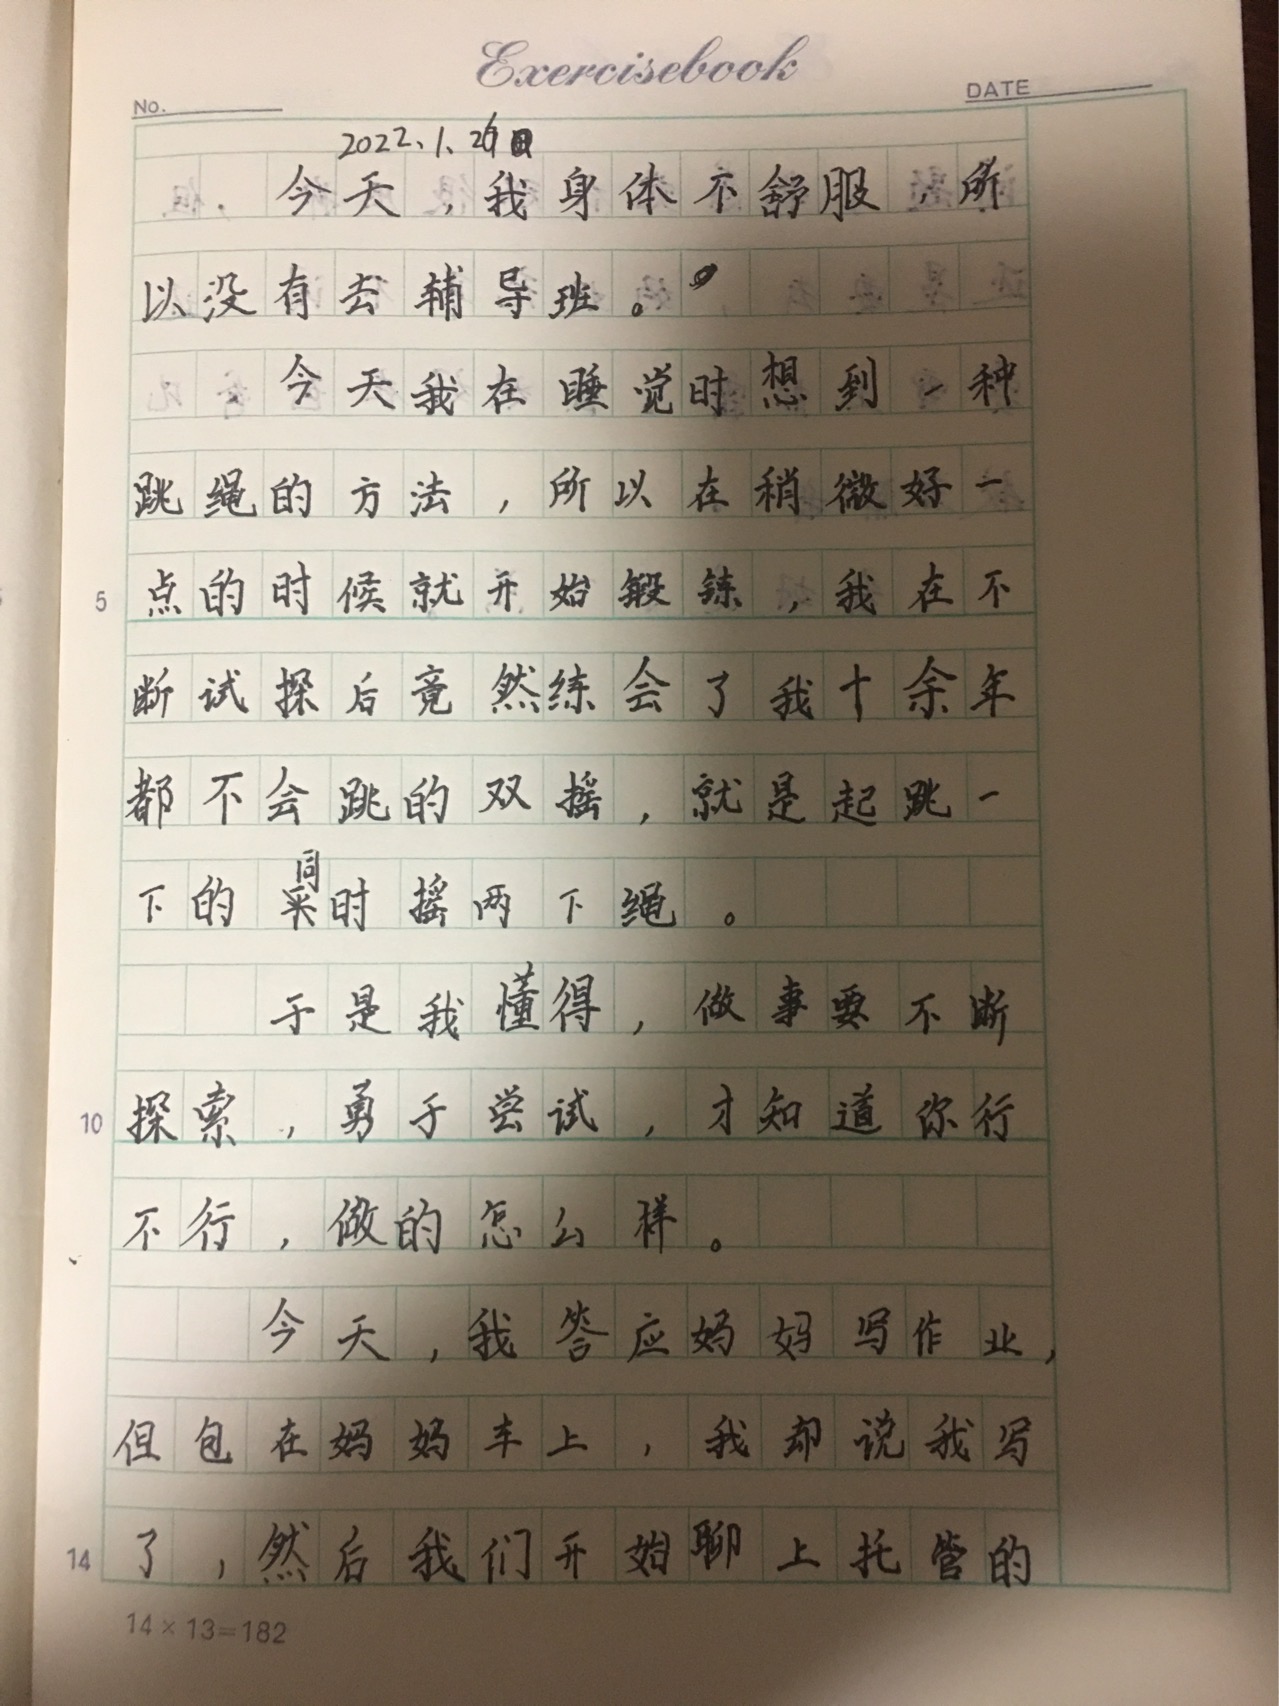 Exercisebook
No.
DATE
2022.1.26日
今天，我身体不舒服，所
以没有去辅导班。
今天我在睡觉时想到一种
跳绳的方法，所以在稍微好一
5 点的时候就开始锻铼，我在不
断试探后竟然练会了我十余年
都不会跳的双摇，就是起跳一
下的同时摇两下绳。
于是我懂得，做事要不断
10 探索，勇于尝试，才知道你行
不行，做的怎么样。
今天，我答应妈妈写作业，
但包在妈妈车上，我却说我写
14 了，然后我们开始聊上托管的
14×13=182